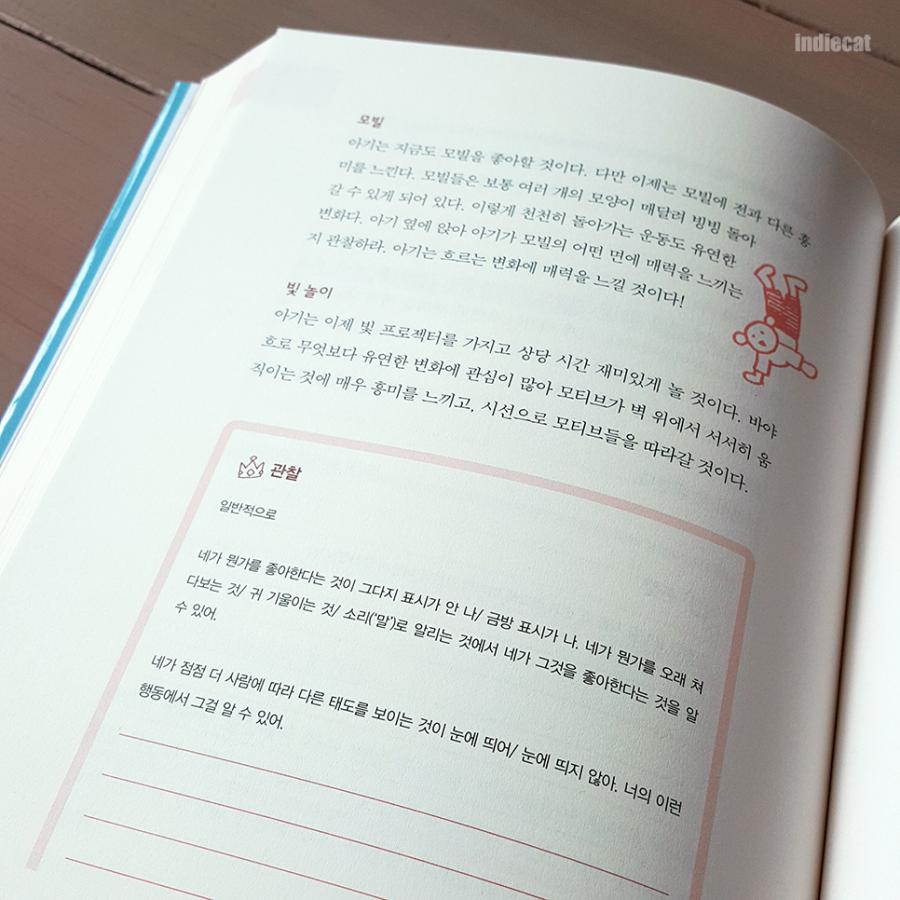 indiecat
모빌
아기는 지금도 모빌을 좋아할 것이다. 다만 이제는 모빌에 전과 다른 흥
미를 느낀다. 모빌들은 보통 여러 개의 모양이 매달려 빙빙 돌아
갈 수 있게 되어 있다. 이렇게 천천히 돌아가는 운동도 유연한
변화다. 아기 옆에 앉아 아기가 모빌의 어떤 면에 매력을 느끼는
지 관찰하라. 아기는 흐르는 변화에 매력을 느낄 것이다!
빛 놀이
아기는 이제 빛 프로젝터를 가지고 상당 시간 재미있게 놀 것이다. 바야
흐로 무엇보다 유연한 변화에 관심이 많아 모티브가 벽 위에서 서서히 움
직이는 것에 매우 흥미를 느끼고, 시선으로 모티브들을 따라갈 것이다.
관찰
일반적으로
네가 뭔가를 좋아한다는 것이 그다지 표시가 안 나/ 금방 표시가 나. 네가 뭔가를 오래 쳐
다보는 것/ 귀 기울이는 것/ 소리('말')로 알리는 것에서 네가 그것을 좋아한다는 것을 알
수 있어.
네가 점점 더 사람에 따라 다른 태도를 보이는 것이 눈에 띄어/ 눈에 띄지 않아. 너의 이런
행동에서 그걸 알 수 있어.